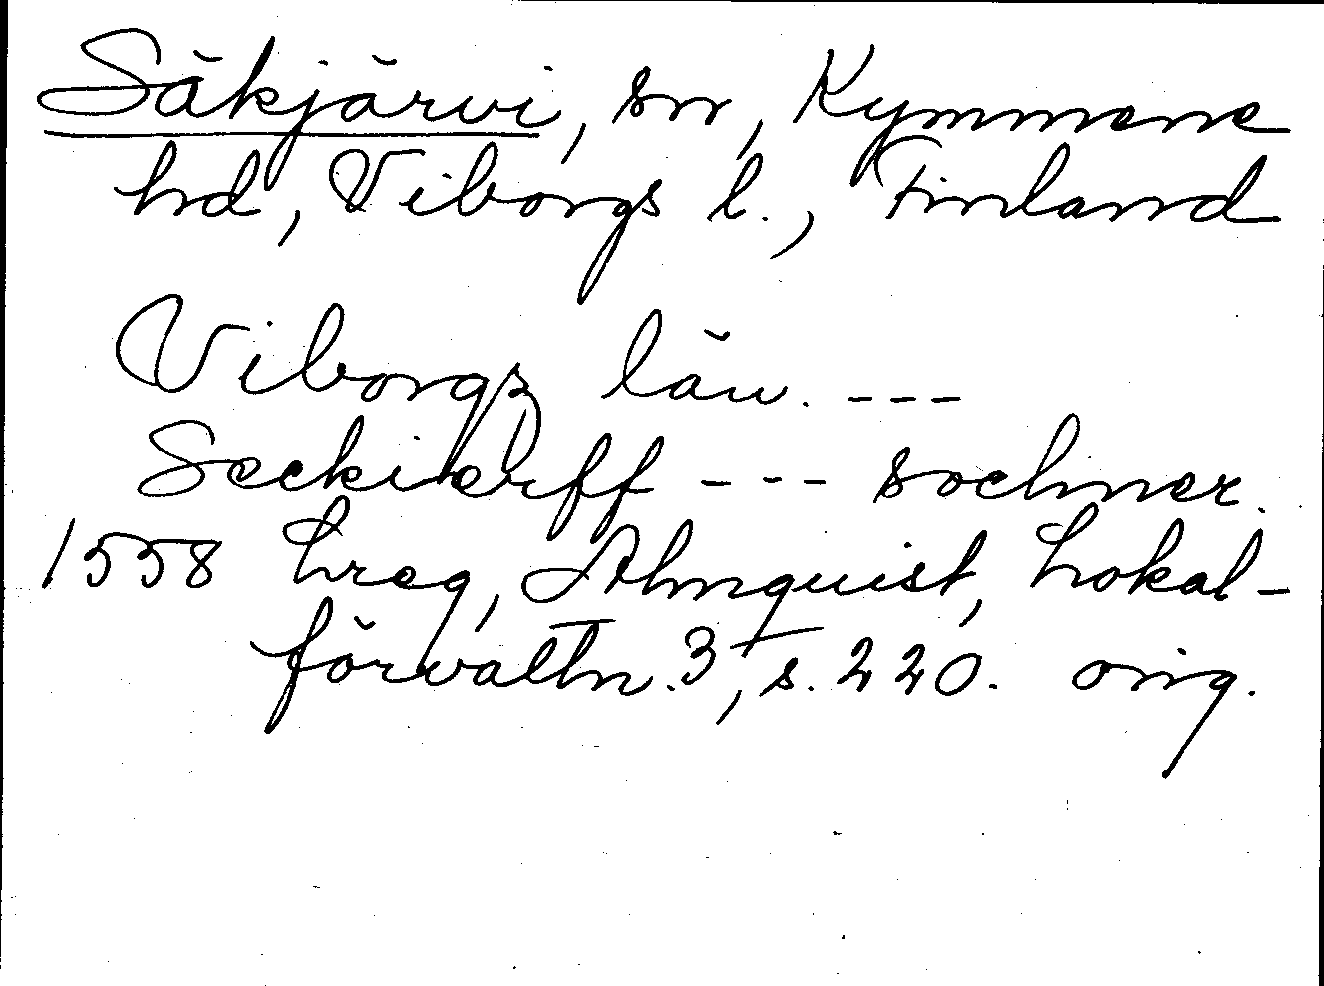 Säkjärvi, sn, Kymmene
hd, Viborgs l., Finland
Viborgz län. ---
Seckierff --- sochner.
1558 hreg, Almquist, Lokal-
förvaltn. 3, s. 220. orig.